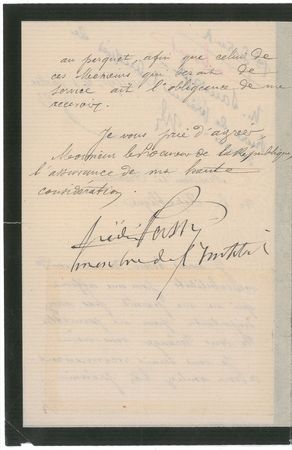 au parquet, afin que celui de
ces Messieurs qui serait de
service ait l'obligeance de me
recevoir.
Je vous prie d'agréer
Monsieur le Procureur de la République,
l'assurance de ma haute
considération.
Frédéric Passy
membre de l'Institut